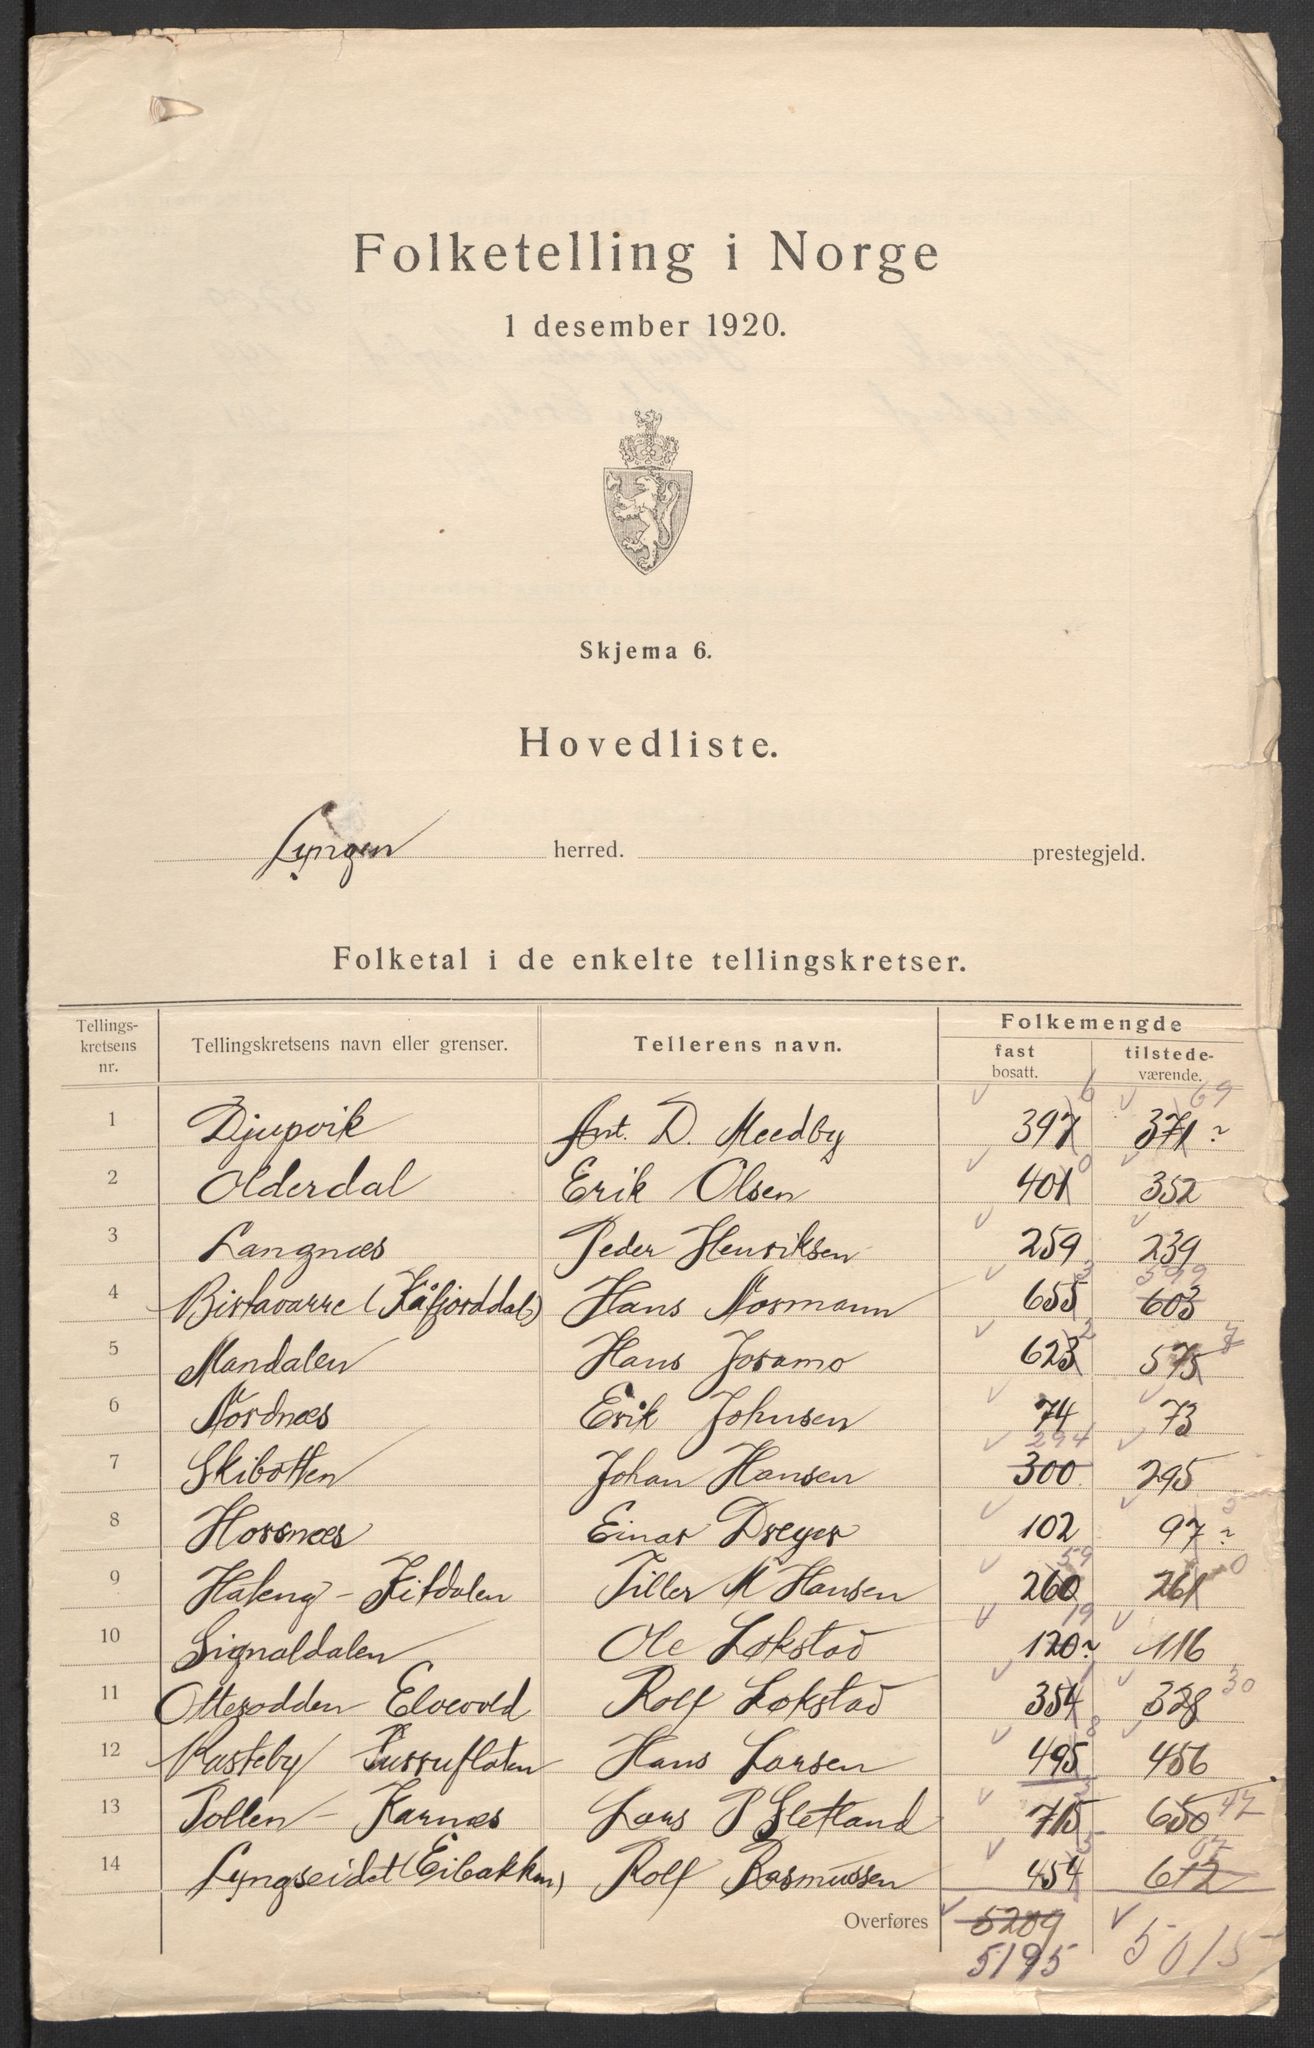 Folketelling i Norge
1 desember 1920.
Skjema 6.
Hovedliste.
Lyngen herred. prestegjeld.
Folketal i de enkelte tellingskretser.
Tellings-kretsens nr. Tellingskretsens navn eller grenser. Tellerens navn. Folkemengde
fast bosatt. tilstede-værende.
1 Djupvik Ant. D. Meedby 397 6 371 69
2 Olderdal Erik Olsen 401 0 352
3 Langnæs Peder Henriksen 259 239
4 Birtavarre (Kåfjorddal) Hans Normann 655 3 603 599
5 Mandalen Hans Joramo 623 2 575 7
6 Nordnæs Erik Johnsen 74 73
7 Skibotten Johan Hansen 300 294 295
8 Horsnæs Einar Dreyer 102 97 3
9 Hateng - Kitdalen Tiller M Hansen 260 59 261 0
10 Signaldalen Ole Lökstad 120 19 116
11 Otterodden Elvevold Rolf Lökstad 354 1 328 30
12 Rasteby Furruflaten Hans Larsen 495 8 456
13 Pollen - Karnæs Lars P Sletland 715 3 650 47
14 Lyngseidet (Eibakken) Rolf Rasmussen 454 5 612 07
Overføres 5209
5195 5015